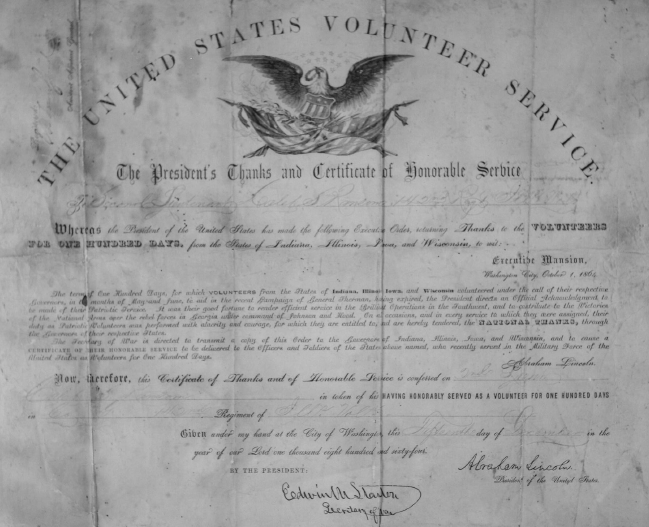 THE UNITED STATES VOLUNTEER SERVICE.
The President's Thanks and Certificate of Honorable Service
Whereas the President of the United States has made the following Executive Order, returning Thanks to the VOLUNTEERS
FOR ONE HUNDRED DAYS, from the States of Indiana, Illinois, Iowa, and Wisconsin, to wit:
Executive Mansion,
Washington City, October 1, 1864.
The term of One Hundred Days, for which VOLUNTEERS from the States of Indiana, Illinois, Iowa, and Wisconsin volunteered under the call of their respective
Governors, in the months of May and June, to aid in the recent Campaign of General Sherman, having expired, the President directs an Official Acknowledgment to
be made of their Patriotic Service. It was their good fortune to render efficient service in the Brilliant Operations in the Southwest, and to contribute to the Victories
of the National Arms over the rebel forces in Georgia under command of Johnson and Hood. On all occasions, and in every service to which they were assigned, their
duty as Patriotic Volunteers was performed with alacrity and courage, for which they are entitled to, and are hereby tendered, the NATIONAL THANKS, through
the Governors of their respective States.
The Secretary of War is directed to transmit a copy of this Order to the Governors of Indiana, Illinois, Iowa, and Wisconsin, and to cause a
CERTIFICATE OF THEIR HONORABLE SERVICE to be delivered to the Officers and Soldiers of the States above named, who recently served in the Military Force of the
United States as Volunteers for One Hundred Days.
Abraham Lincoln.
Now, therefore, this Certificate of Thanks and of Honorable Service is conferred on
in token of his HAVING HONORABLY SERVED AS A VOLUNTEER FOR ONE HUNDRED DAYS
in Regiment of
Given under my hand at the City of Washington, this fifteenth day of December in the
year of our Lord one thousand eight hundred and sixty-four.
Abraham Lincoln
President of the United States.
BY THE PRESIDENT:
Edwin M Stanton
Secretary of War